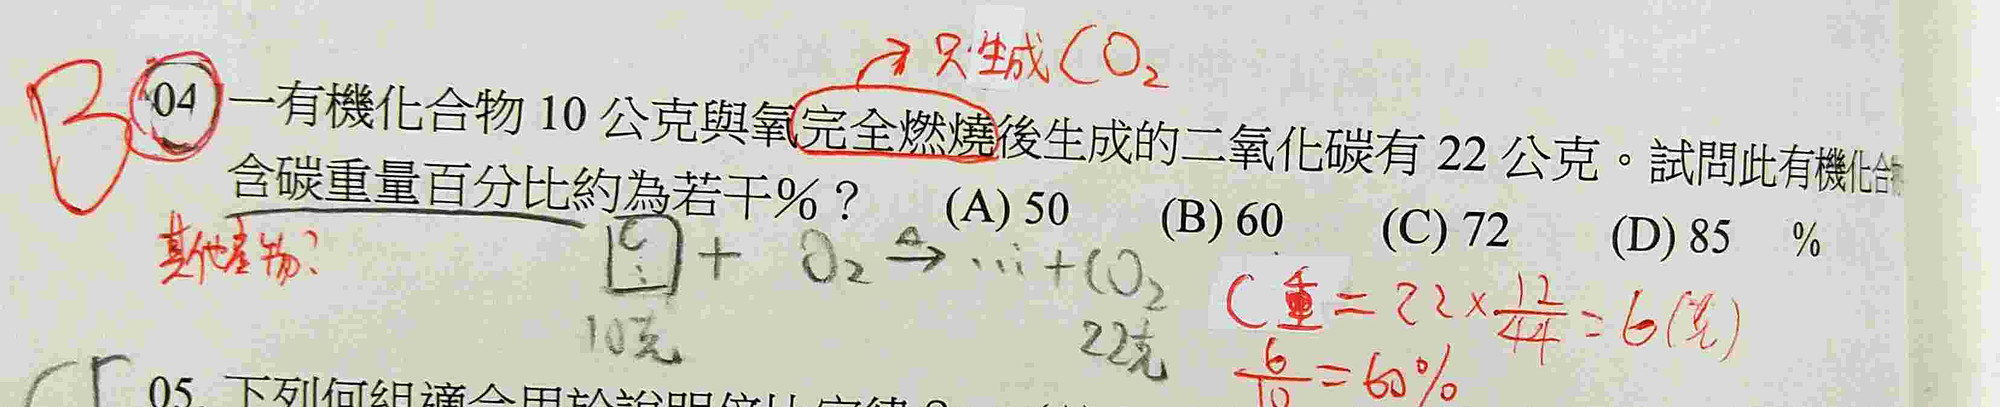 只生成CO₂
B
04 一有機化合物 10 公克與氧完全燃燒後生成的二氧化碳有 22 公克。試問此有機化合物
含碳重量百分比約為若干%? (A) 50 (B) 60 (C) 72 (D) 85 %
其他產物?
C + O₂ →Δ ... + CO₂
10克 22克
C重 = 22 × 12/44 = 6(克)
6/10 = 60%
05. 下列何組適合用於說明倍比定律?